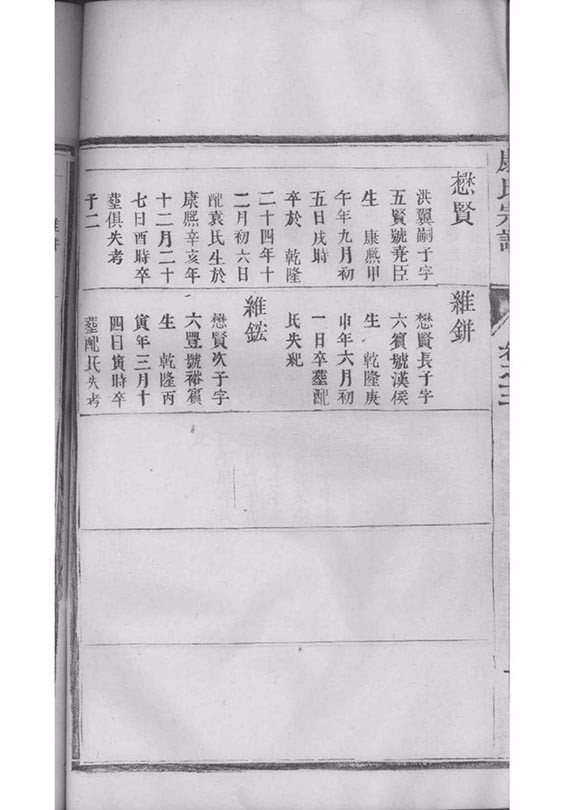 康氏宗譜
懋賢
洪翼嗣子字
五賢號堯臣
生 康熙甲
午年九月初
五日戌時
卒於 乾隆
二十四年十
二月初六日
配袁氏生於
康熙辛亥年
十二月二十
七日酉時卒
塟俱失考
子二
維鉼
懋賢長子字
六賓號漢侯
生 乾隆庚
申年六月初
一日卒塟配
氏失紀
維鋐
懋賢次子字
六豐號裕賓
生 乾隆丙
寅年三月十
四日寅時卒
塟配氏失考